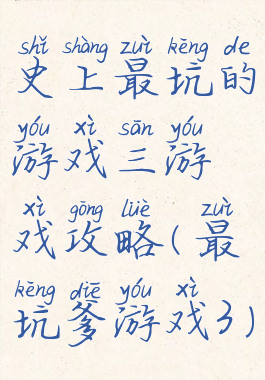 shǐ shàng zuì kēng de
史上最坑的
yóu xì sān yóu
游戏三游
xì gōng lüè zuì
戏攻略(最
kēng diē yóu xì
坑爹游戏3)